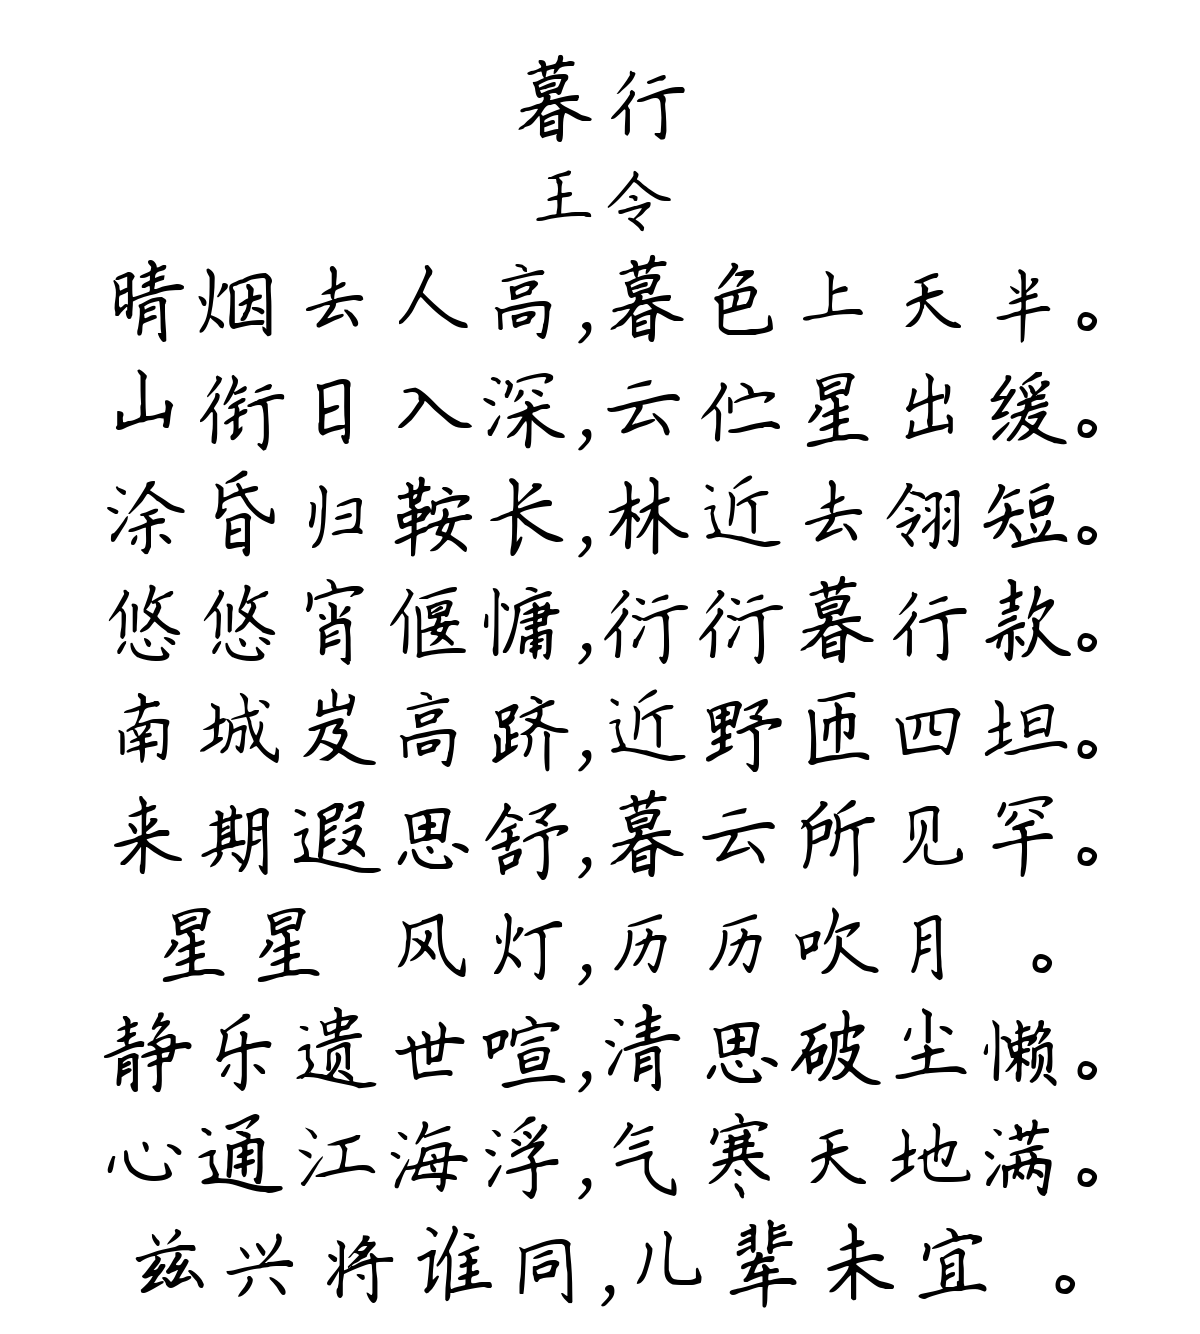 暮行
王令
晴烟去人高,暮色上天半。
山衔日入深,云伫星出缓。
涂昏归鞍长,林近去翎短。
悠悠宵偃慵,衍衍暮行款。
南城岌高跻,近野匝四坦。
来期遐思舒,暮云所见罕。
星星 风灯,历历吹月 。
静乐遗世喧,清思破尘懒。
心通江海浮,气寒天地满。
兹兴将谁同,儿辈未宜 。